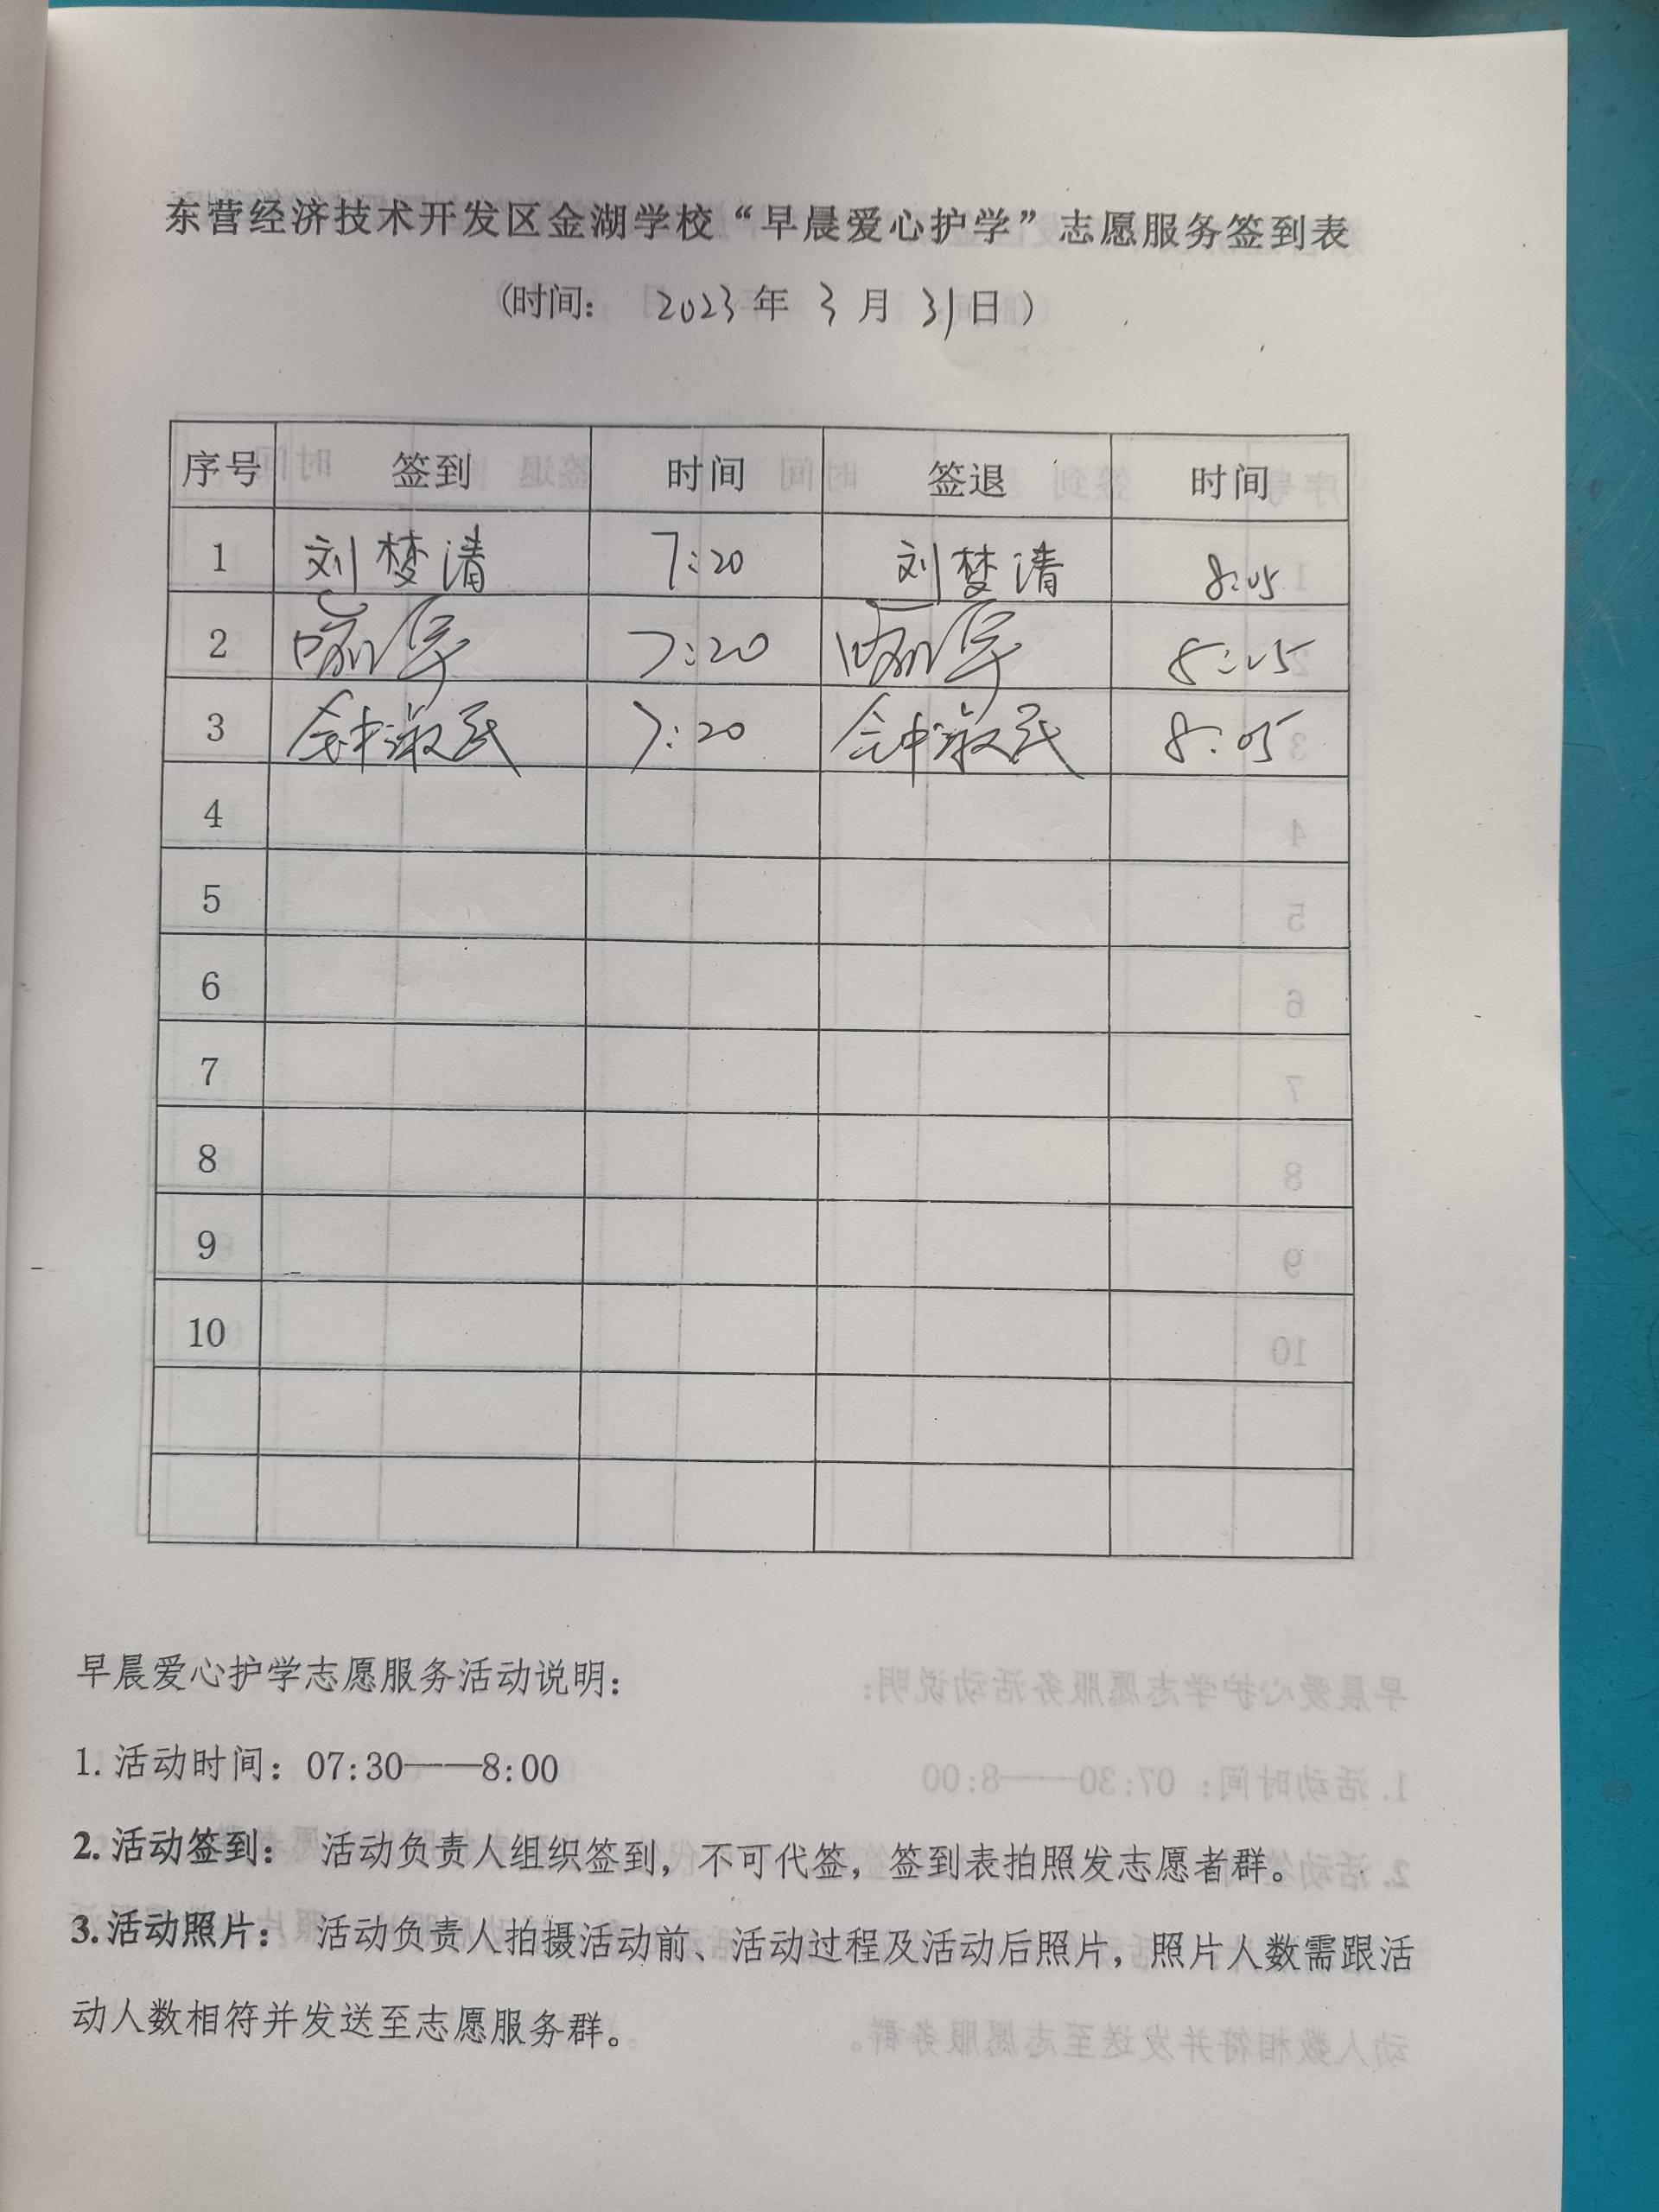 东营经济技术开发区金湖学校“早晨爱心护学”志愿服务签到表
(时间： 2023年 3月 31日）
序号 签到 时间 签退 时间
1 刘梦清 7:20 刘梦清 8:05
2 7:20 8:05
3 钟淑民 7:20 钟淑民 8:05
4
5
6
7
8
9
10
早晨爱心护学志愿服务活动说明：
1. 活动时间：07:30——8:00
2. 活动签到： 活动负责人组织签到，不可代签，签到表拍照发志愿者群。
3. 活动照片： 活动负责人拍摄活动前、活动过程及活动后照片，照片人数需跟活
动人数相符并发送至志愿服务群。